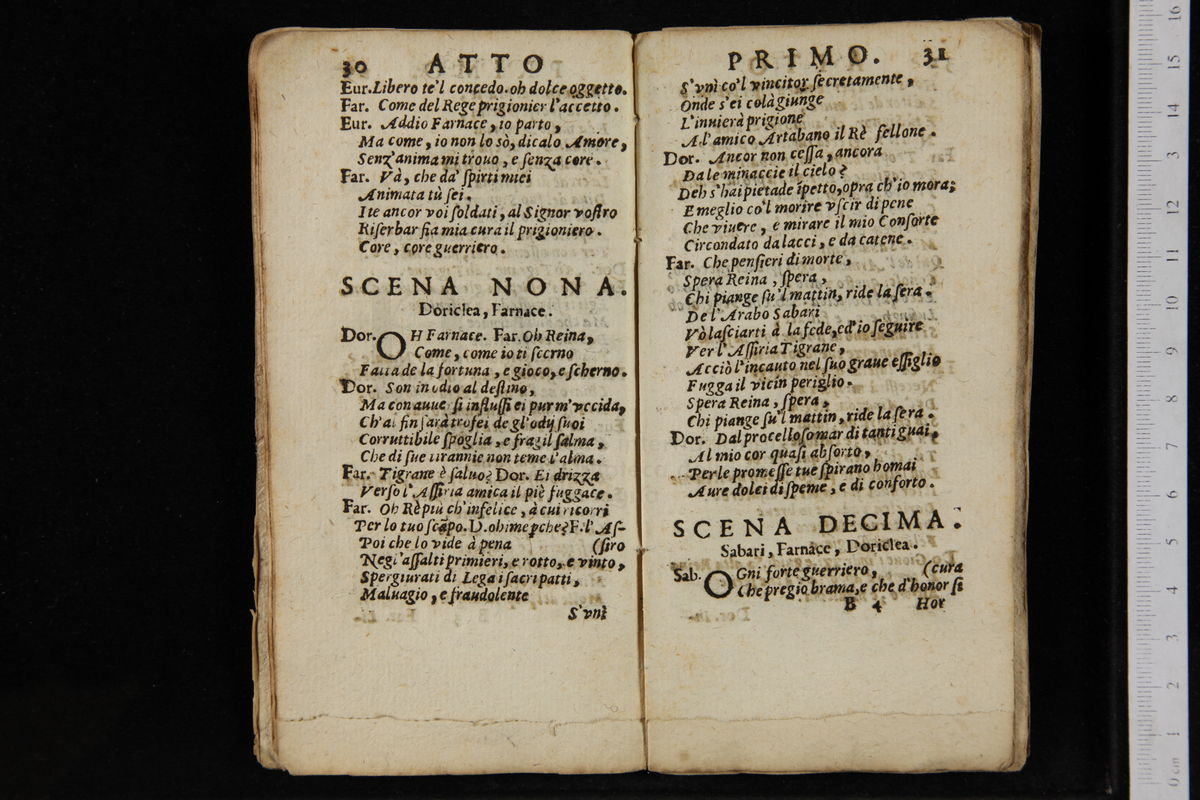 30 ATTO
Eur. Libero te'l concedo. oh dolce oggetto.
Far. Come del Rege prigionier l'accetto.
Eur. Addio Farnace, io parto,
Ma come, io non lo sò, dicalo Amore,
Senz'anima mi trouo, e senza core.
Far. Và, che da' spirti miei
Animata tù sei.
Ite ancor voi soldati, al Signor vostro
Riserbar fia mia cura il prigioniero.
Core, core guerriero.
SCENA NONA.
Doriclea, Farnace.
Dor. OH Farnace. Far. Oh Reina,
Come, come io ti scerno
Fatta de la fortuna, e gioco, e scherno.
Dor. Son in odio al destino,
Ma con auuersi influssi ei pur m'vccida,
Ch'al fin sarà trofei de gl'odij suoi
Corruttibile spoglia, e fragil salma,
Che di sue tirannie non teme l'alma.
Far. Tigrane è saluo? Dor. Ei drizza
Verso l'Assiria amica il piè fuggace.
Far. Oh Rè più ch'infelice, à cui ricorri
Per lo tuo scāpo. D. ohime pche? F. l'As-
Poi che lo vide à pena (siro
Negl'assalti primieri, e rotto, e vinto,
Spergiurati di Lega i sacri patti,
Maluagio, e fraudolente
S'vnì
PRIMO. 31
S'vnì co'l vincitor secretamente,
Onde s'ei colà giunge
L'inuierà prigione
A l'amico Artabano il Rè fellone.
Dor. Ancor non cessa, ancora
Da le minaccie il cielo?
Deh s'hai pietade ī petto, opra ch'io mora;
E meglio co'l morire vscir di pene
Che viuere, e mirare il mio Consorte
Circondato da lacci, e da catene.
Far. Che pensieri di morte,
Spera Reina, spera,
Chi piange su'l mattin, ride la sera.
De l'Arabo Sabari
Vò lasciarti à la fede, ed'io seguire
Ver l'Assiria Tigrane,
Acciò l'incauto nel suo graue essiglio
Fugga il vicin periglio.
Spera Reina, spera,
Chi piange su'l mattin, ride la sera.
Dor. Dal procelloso mar di tanti guai,
Al mio cor quasi absorto,
Per le promesse tue spirano homai
Aure dolci di speme, e di conforto.
SCENA DECIMA.
Sabari, Farnace, Doriclea.
Sab. OGni forte guerriero, (cura
Che pregio brama, e che d'honor si
B 4 Hor